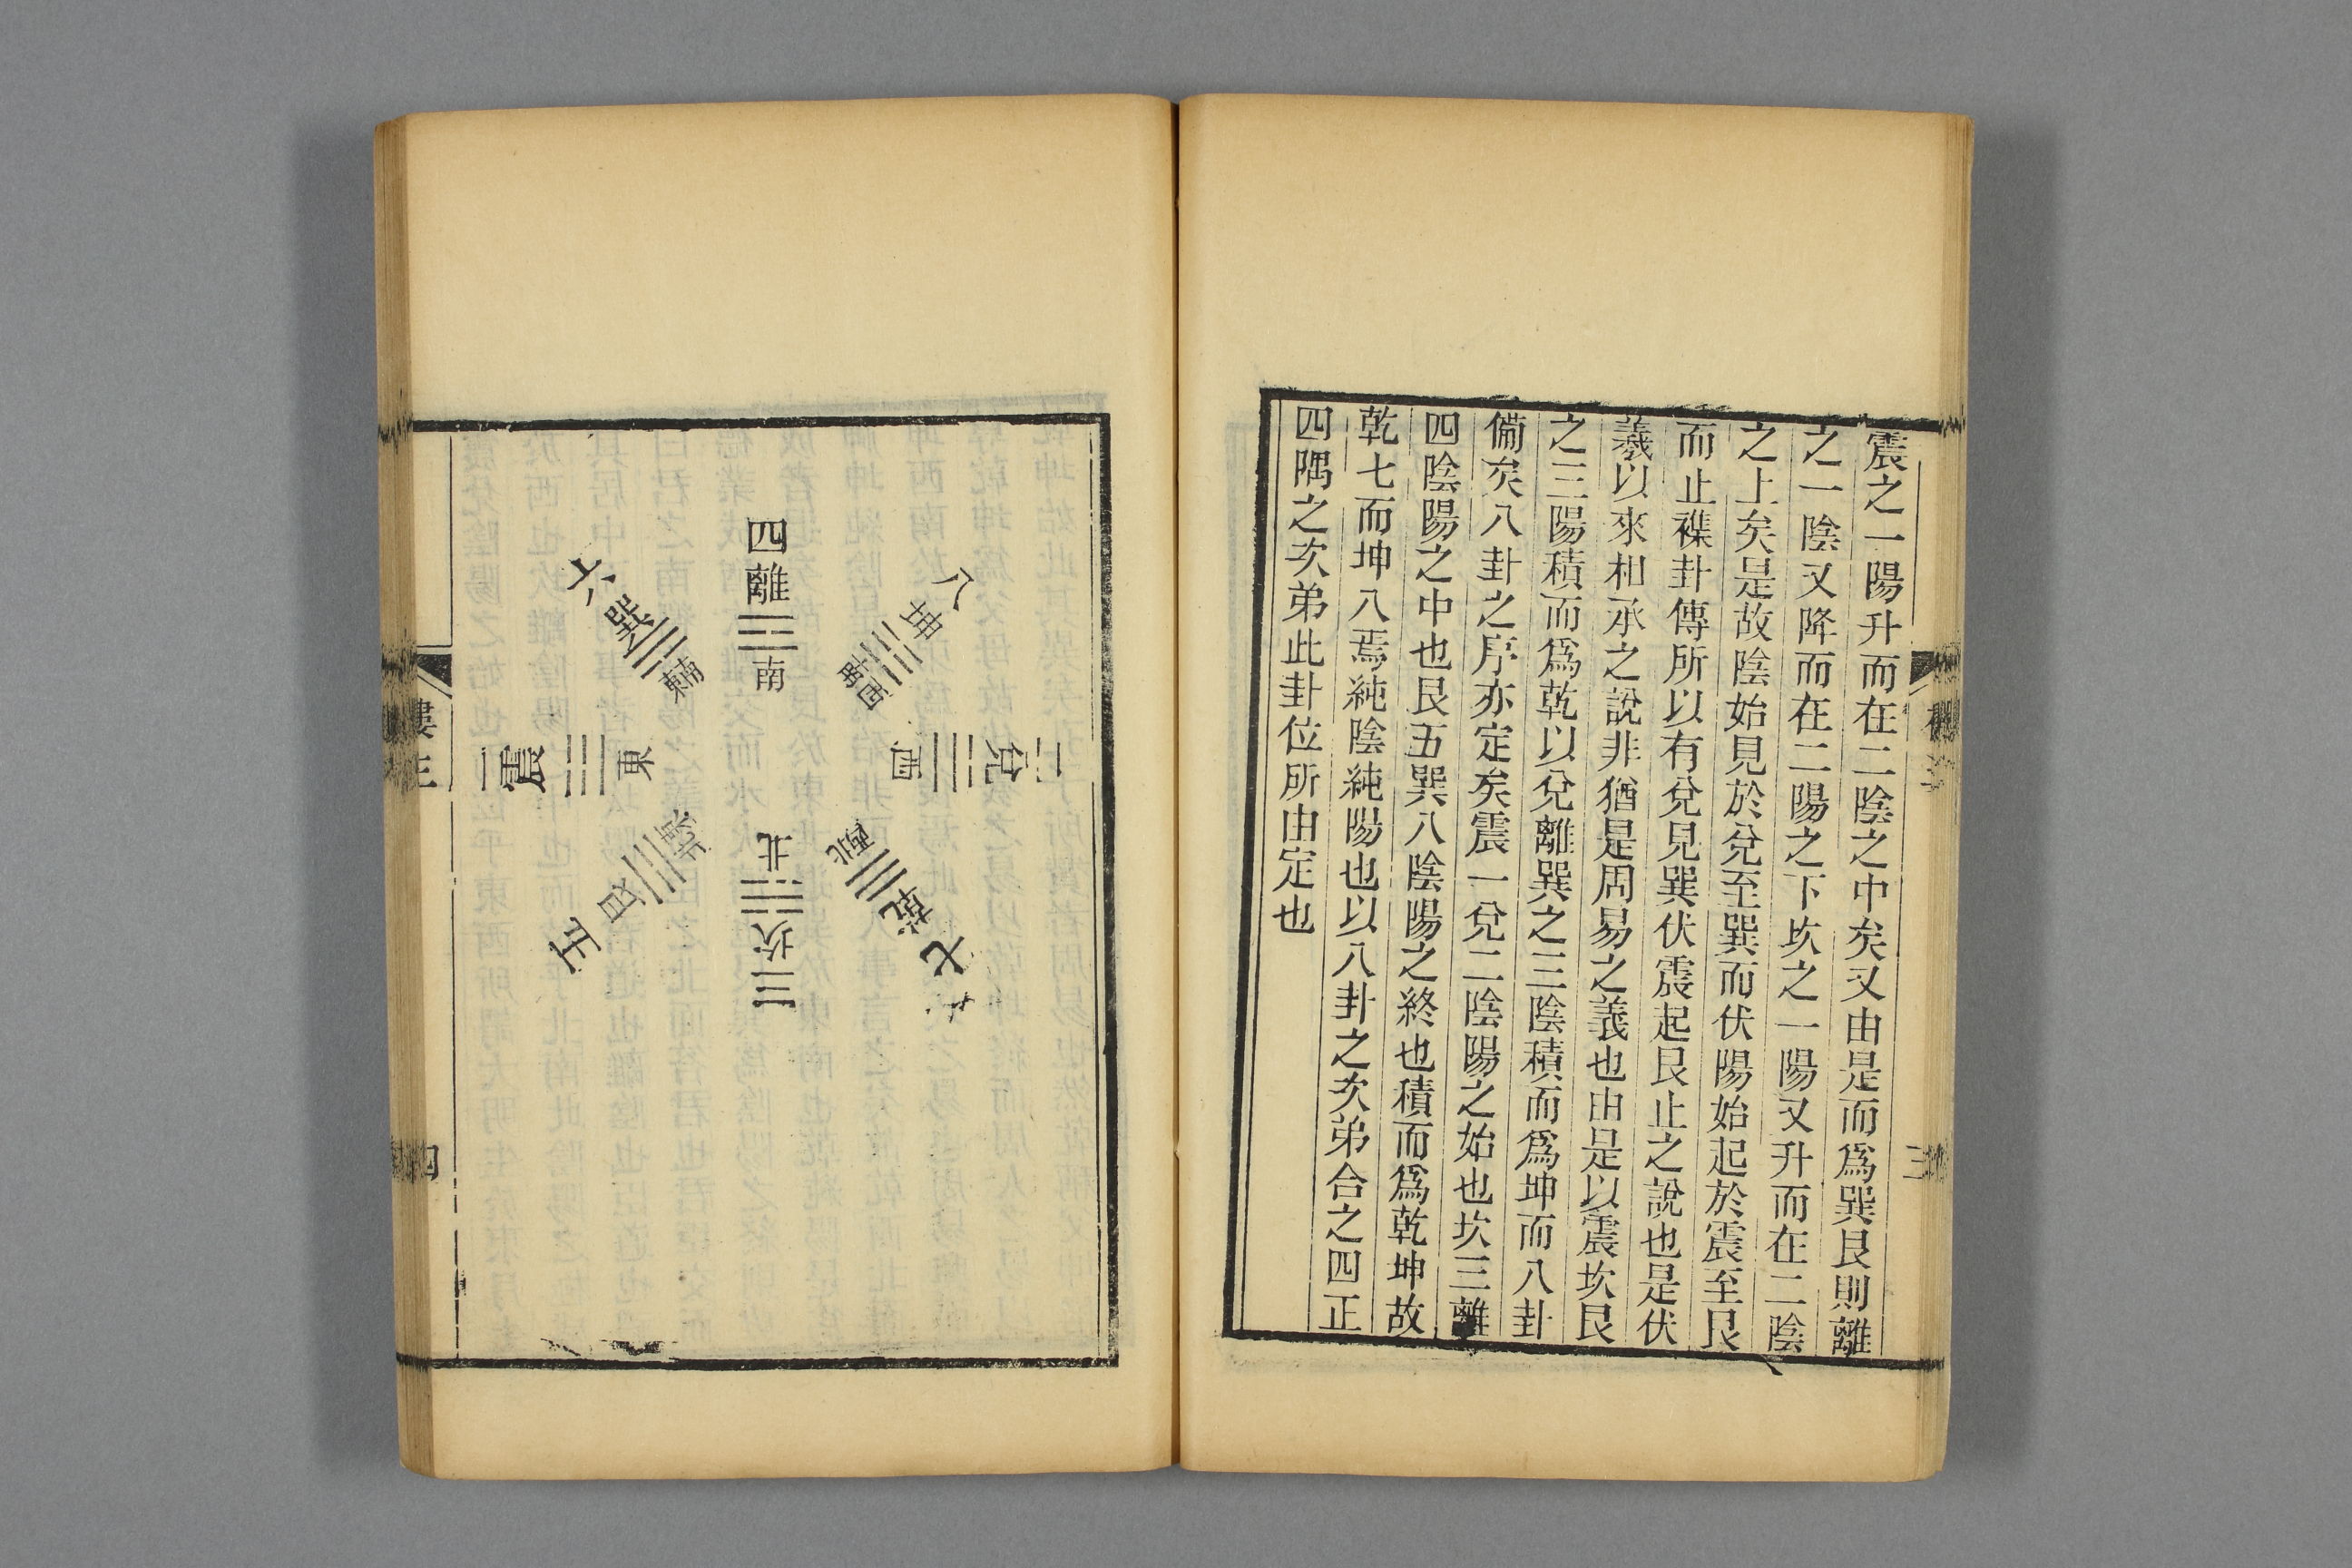 震之一陽升而在二陰之中矣又由是而爲巽艮則離
之一陰又降而在二陽之下坎之一陽又升而在二陰
之上矣是故陰始見於兌至巽而伏陽始起於震至艮
而止襍卦傳所以有兌見巽伏震起艮止之說也是伏
羲以來相承之說非猶是周易之義也由是以震坎艮
之三陽積而爲乾以兌離巽之三陰積而爲坤而八卦
備矣八卦之序亦定矣震一兌二陰陽之始也坎三離
四陰陽之中也艮五巽八陰陽之終也積而爲乾坤故
乾七而坤八焉純陰純陽也以八卦之次弟合之四正
四隅之次弟此卦位所由定也
三
八坤☷西南
二兌☱西
七乾☰西北
四離☲南
三坎☵北
六巽☴東南
一震☳東
五艮☶東北
四